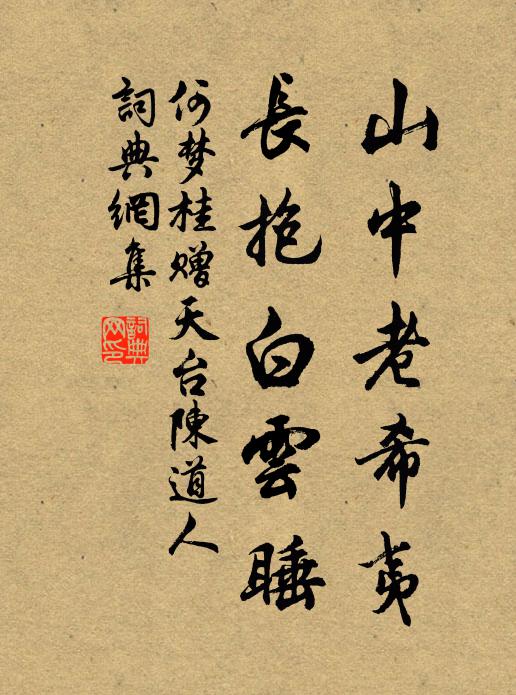 山中老希夷
長抱白雲睡
何梦桂赠天台陳道人
詞典網集
詞典网印